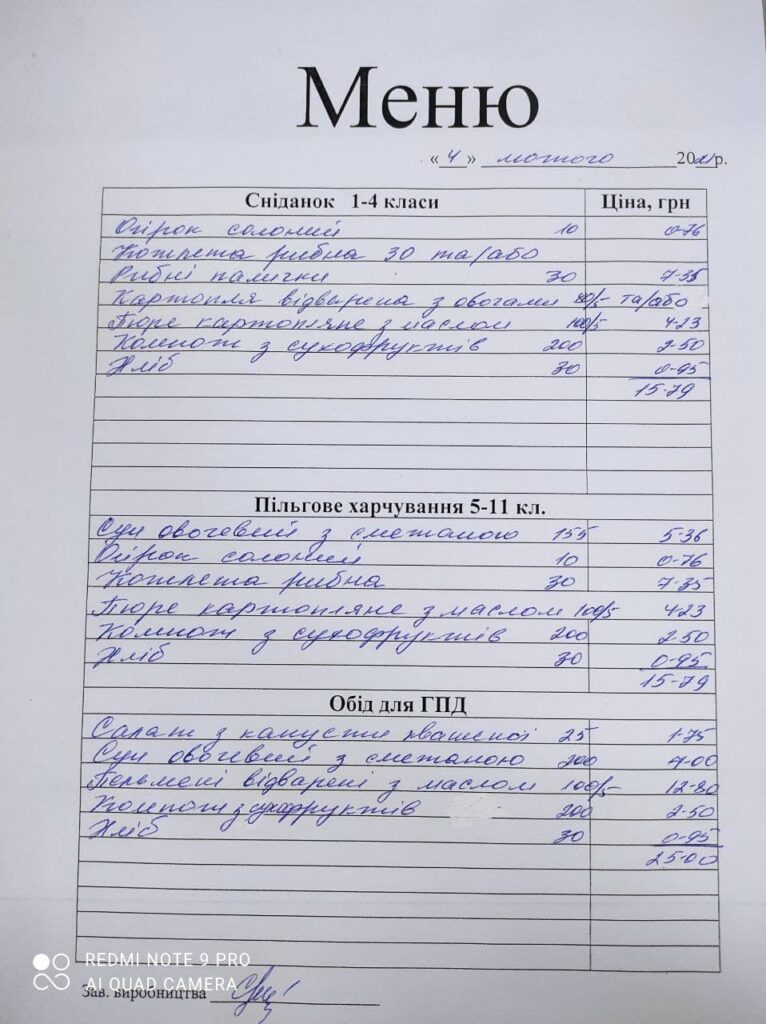 Меню
«4» лютого 2021р.
Сніданок 1-4 класи Ціна, грн
Огірок солоний 10 0-76
Котлета рибна 30 та/або
Рибні палички 30 7-35
Картопля відварена з овочами /5 та/або
Пюре картопляне з маслом 100/5 4-23
Компот з сухофруктів 200 2-50
Хліб 30 0-95
15-79
Пільгове харчування 5-11 кл.
Суп овочевий з сметаною 155 5-36
Огірок солоний 10 0-76
Котлета рибна 30 7-35
Пюре картопляне з маслом 100/5 4-23
Компот з сухофруктів 200 2-50
Хліб 30 0-95
15-79
Обід для ГПД
Салат з капусти квашеної 25 1-75
Суп овочевий з сметаною 200 7-00
Пельмені відварені з маслом 100/5 12-80
Компот з сухофруктів 200 2-50
Хліб 30 0-95
25-00
REDMI NOTE 9 PRO
AI QUAD CAMERA
Зав. виробництва